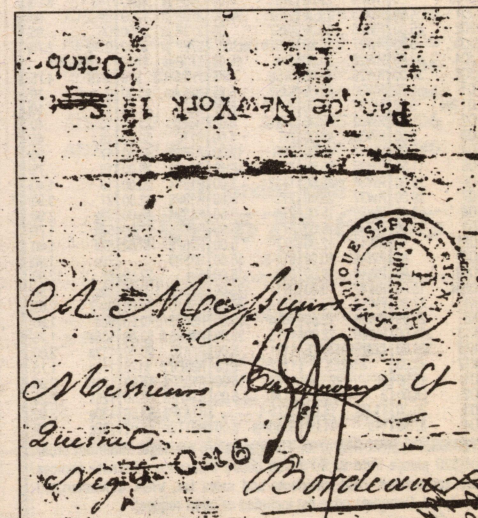 Octobr
Paq. de NewYork 1
AMERIQUE SEPTENTRIONALE
LORIENT
A Messieurs
Messieurs Et
Quesnel
Oct, 6
Bordeaux